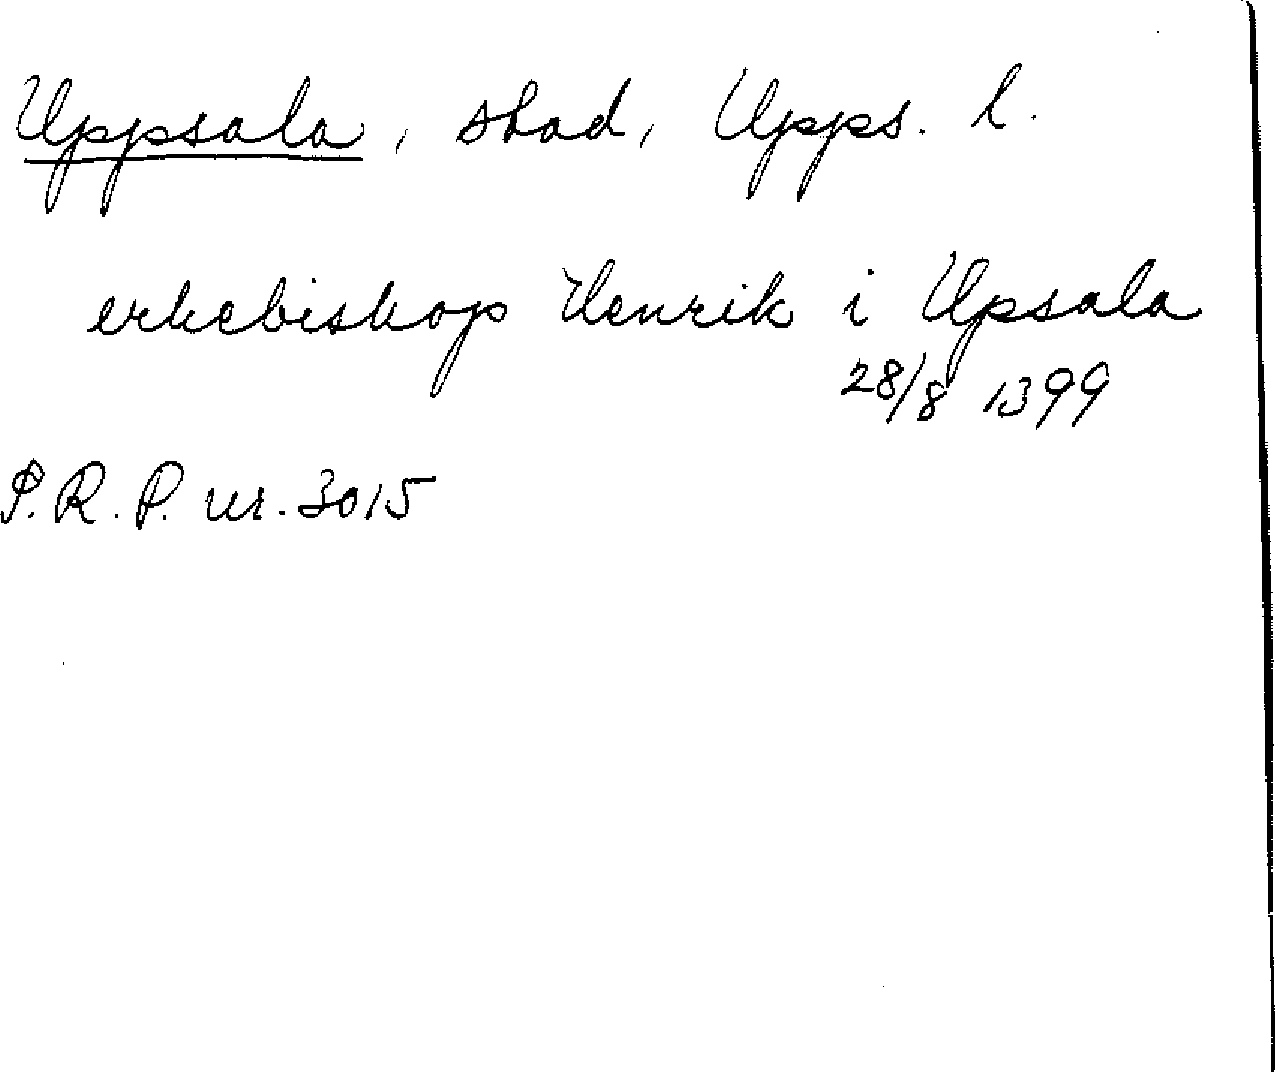 Uppsala, stad, Upps. l.
erkebiskop Henrik i Upsala
28/8 1399
P.R.P. nr. 3015